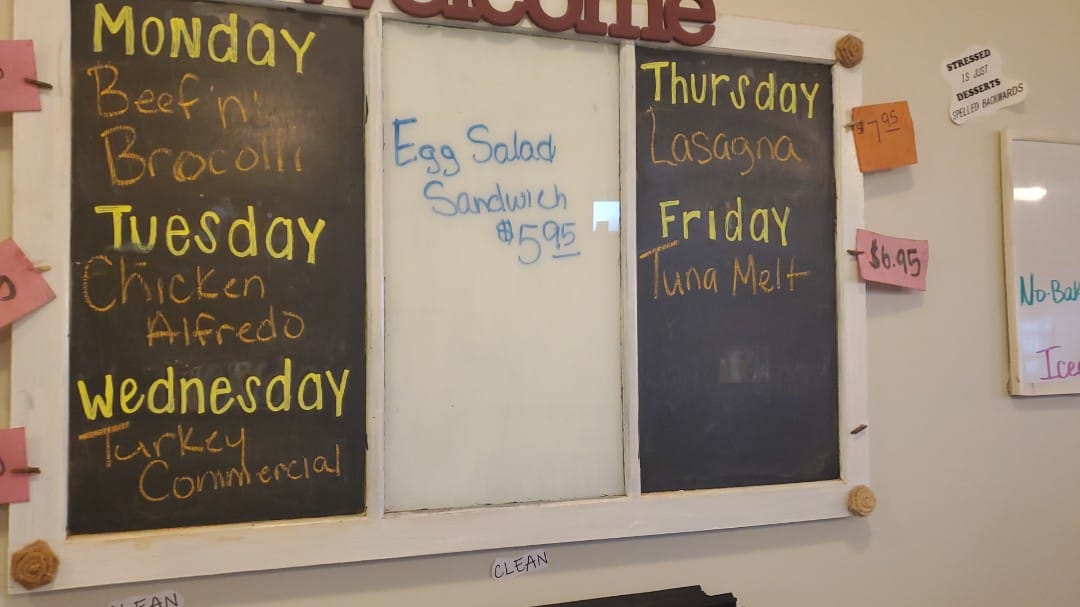 Welcome
Monday
Beef 'n'
Brocolli
Tuesday
Chicken
Alfredo
Wednesday
Turkey
Commercial
Egg Salad
Sandwich
$5.95
Thursday
Lasagna
Friday
Tuna Melt
$7.95
$6.95
STRESSED
IS JUST
DESSERTS
SPELLED BACKWARDS
No-Bak
Ice
CLEAN